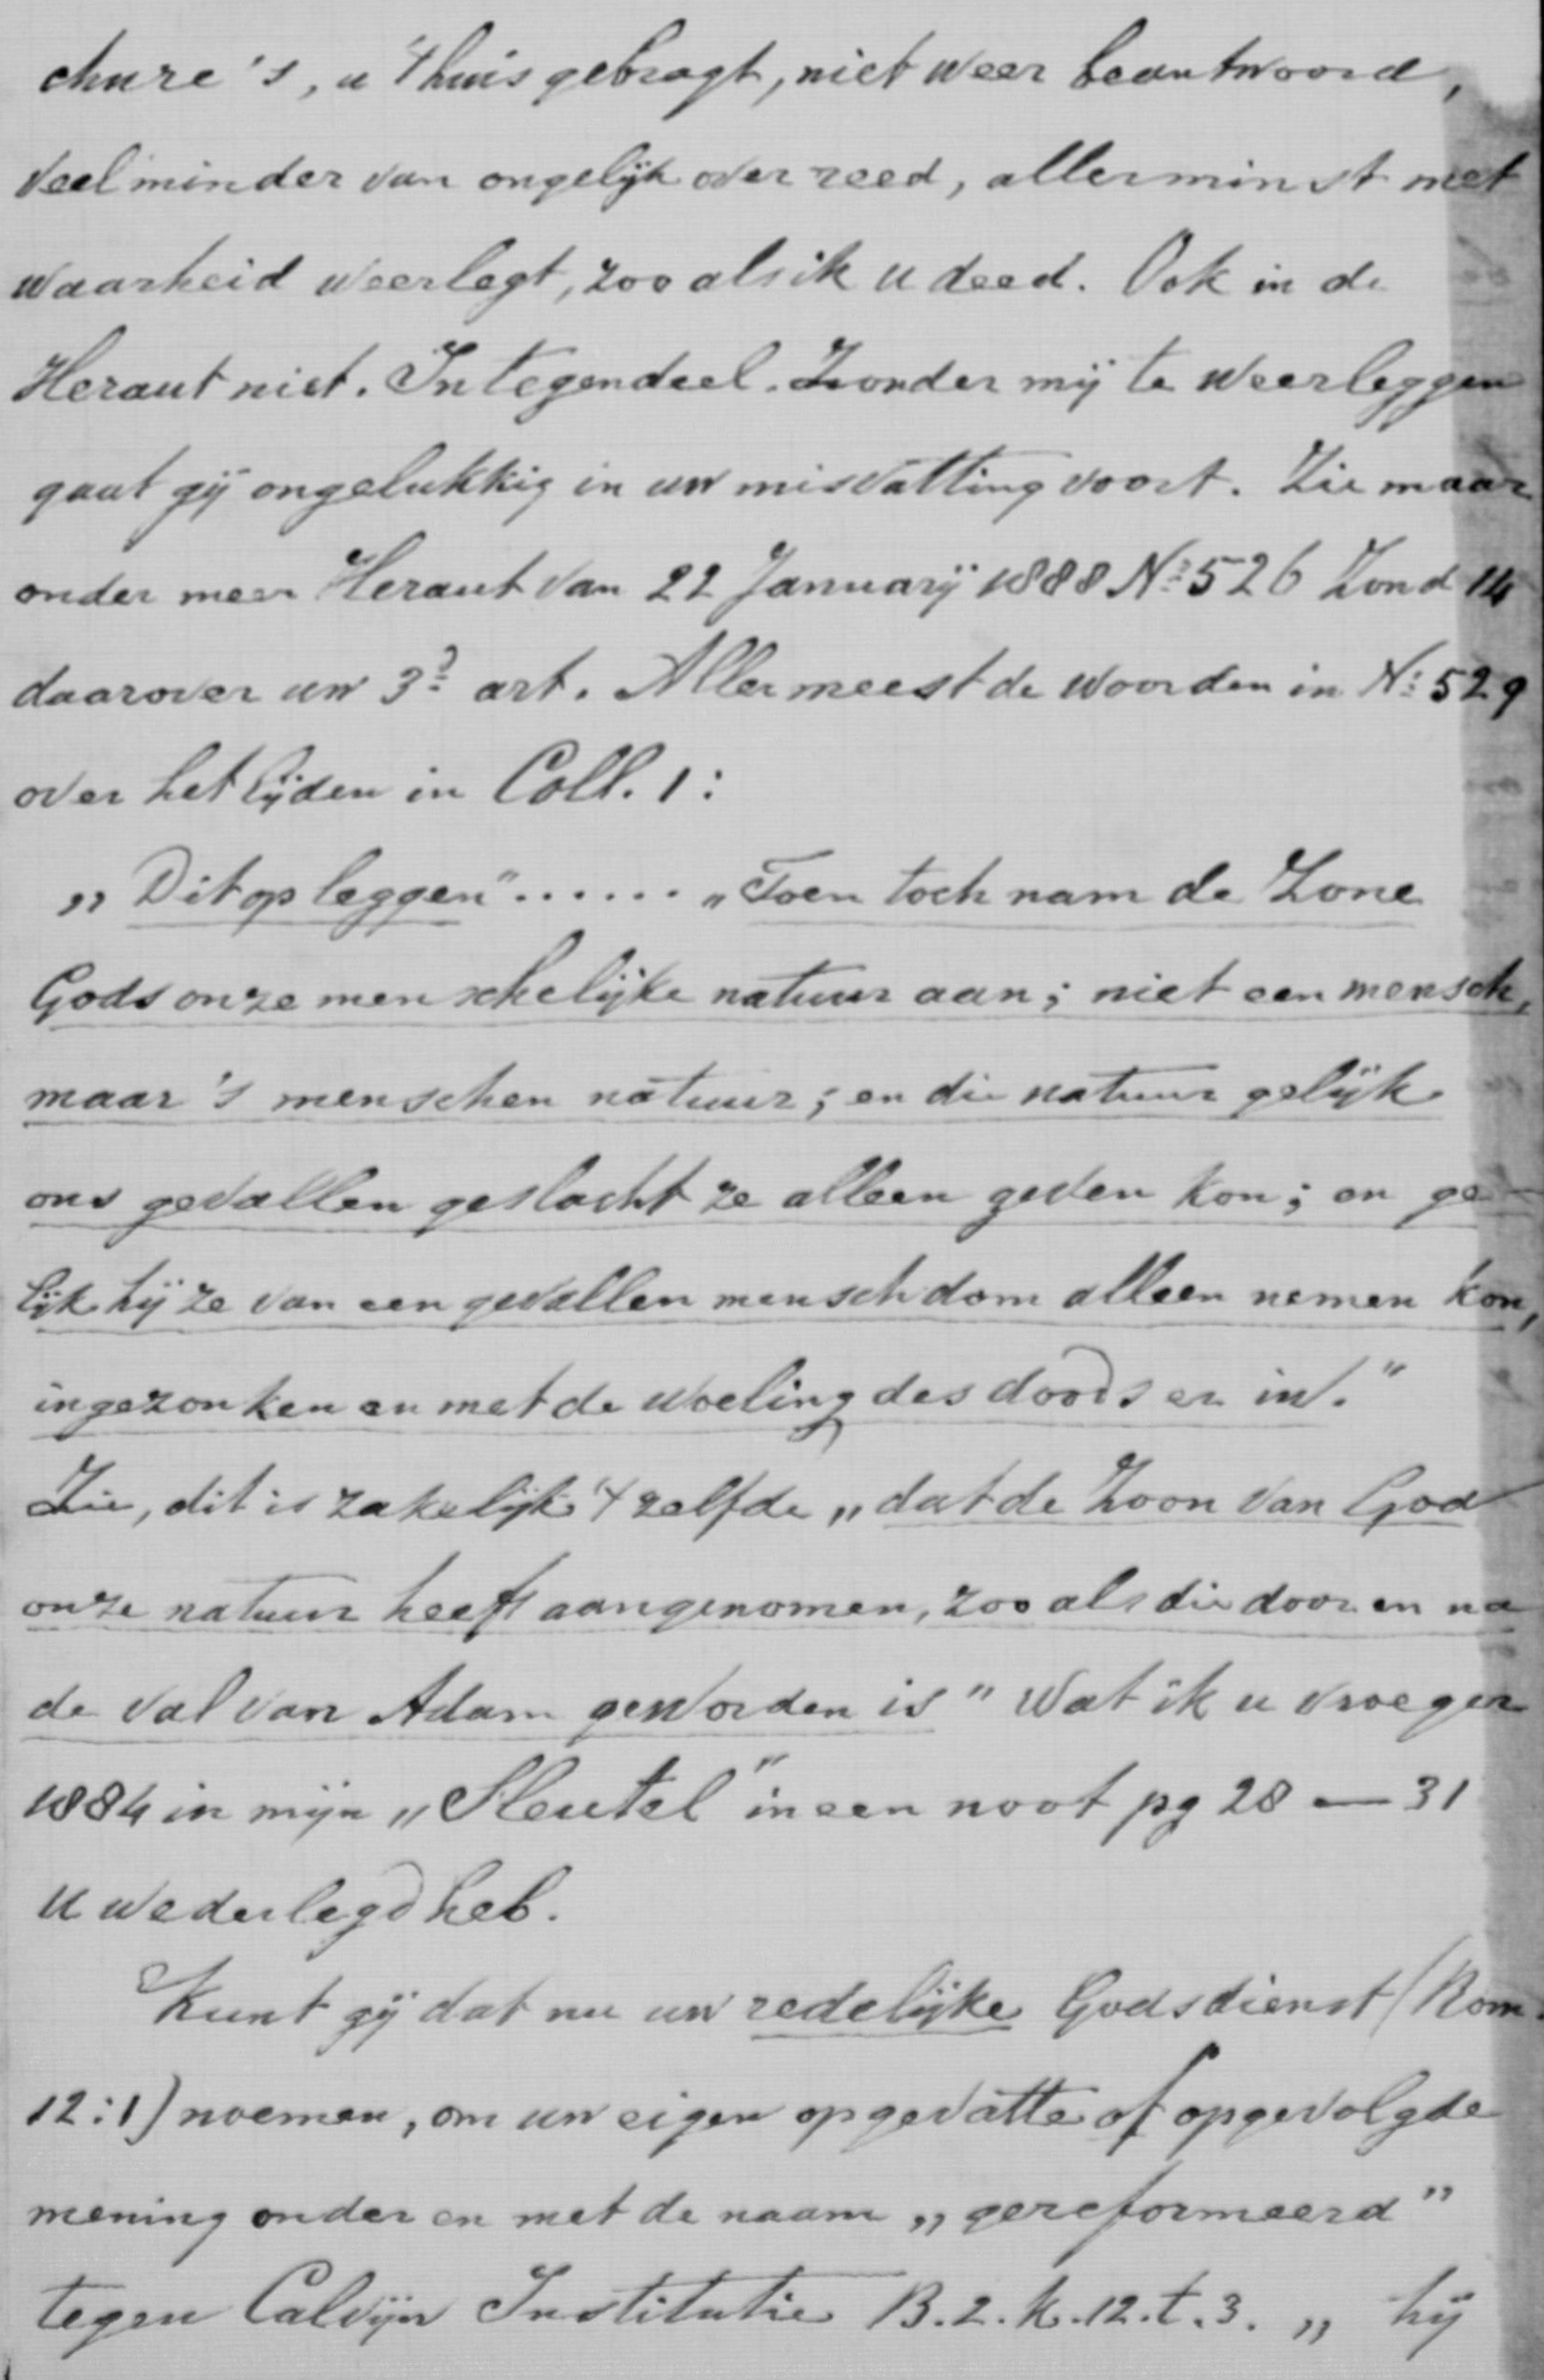 chure's, u 't huis gebragt, niet weer beantwoord,
veelminder van ongelijk overreed, allerminst met
waarheid weerlegt, zooals ik u deed. Ook in de
Heraut niet. Integendeel. Zonder mij te weerleggen
gaat gij ongelukkig in uw misvatting voort. Zie maar
onder meer Heraut van 22 Januarij 1888 No 526 Zond 14
daarover uw 3e art. Allermeest de woorden in No 529
over het lijden in Coll. 1:
„Dit opleggen"...... „Toen toch nam de Zone
Gods onze menschelijke natuur aan; niet een mensch,
maar 's menschen natuur; en die natuur gelijk
ons gevallen geslacht ze alleen geven kon; en ge-
lijk hij ze van een gevallen menschdom alleen nemen kon,
ingezonken en met de woeling des doods er in."
Zie, dit is zakelijk 't zelfde „dat de Zoon van God
onze natuur heeft aangenomen, zooals die door en na
de val van Adam geworden is" wat ik u vroeger
1884 in mijn „Sleutel" in een noot pg 28 — 31
u wederlegd heb.
Kunt gij dat nu uw redelijke Godsdienst (Rom.
12:1) noemen, om uw eigen opgevatte of opgevolgde
mening onder en met de naam „gereformeerd"
tegen Calvijn Institutie B. 2. k. 12. t. 3. „ hij